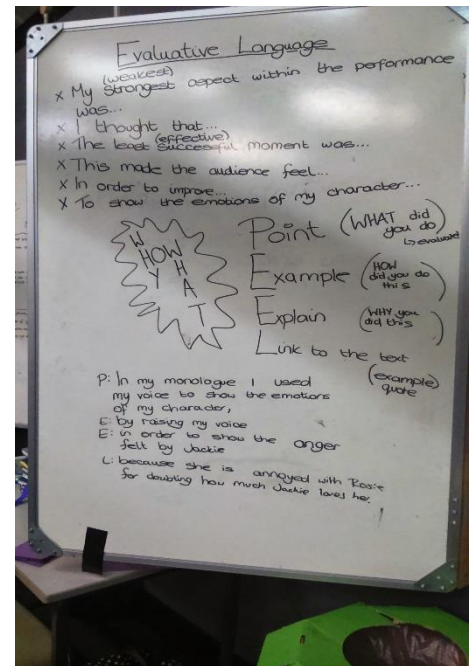 Evaluative Language
(weakest)
x My strongest aspect within the performance
was...
x I thought that...
(effective)
x The least successful moment was...
x This made the audience feel...
x In order to improve...
x To show the emotions of my character...
WHY
HOW
WHAT
Point (WHAT did
you do)
↳ evaluate
Example (HOW
did you do
this)
Explain (WHY you
did this)
Link to the text
(example)
quote
P: In my monologue I used
my voice to show the emotions
of my character,
E: by raising my voice
E: in order to show the anger
felt by Jackie
L: because she is annoyed with Rosie
for doubting how much Jackie loves her.